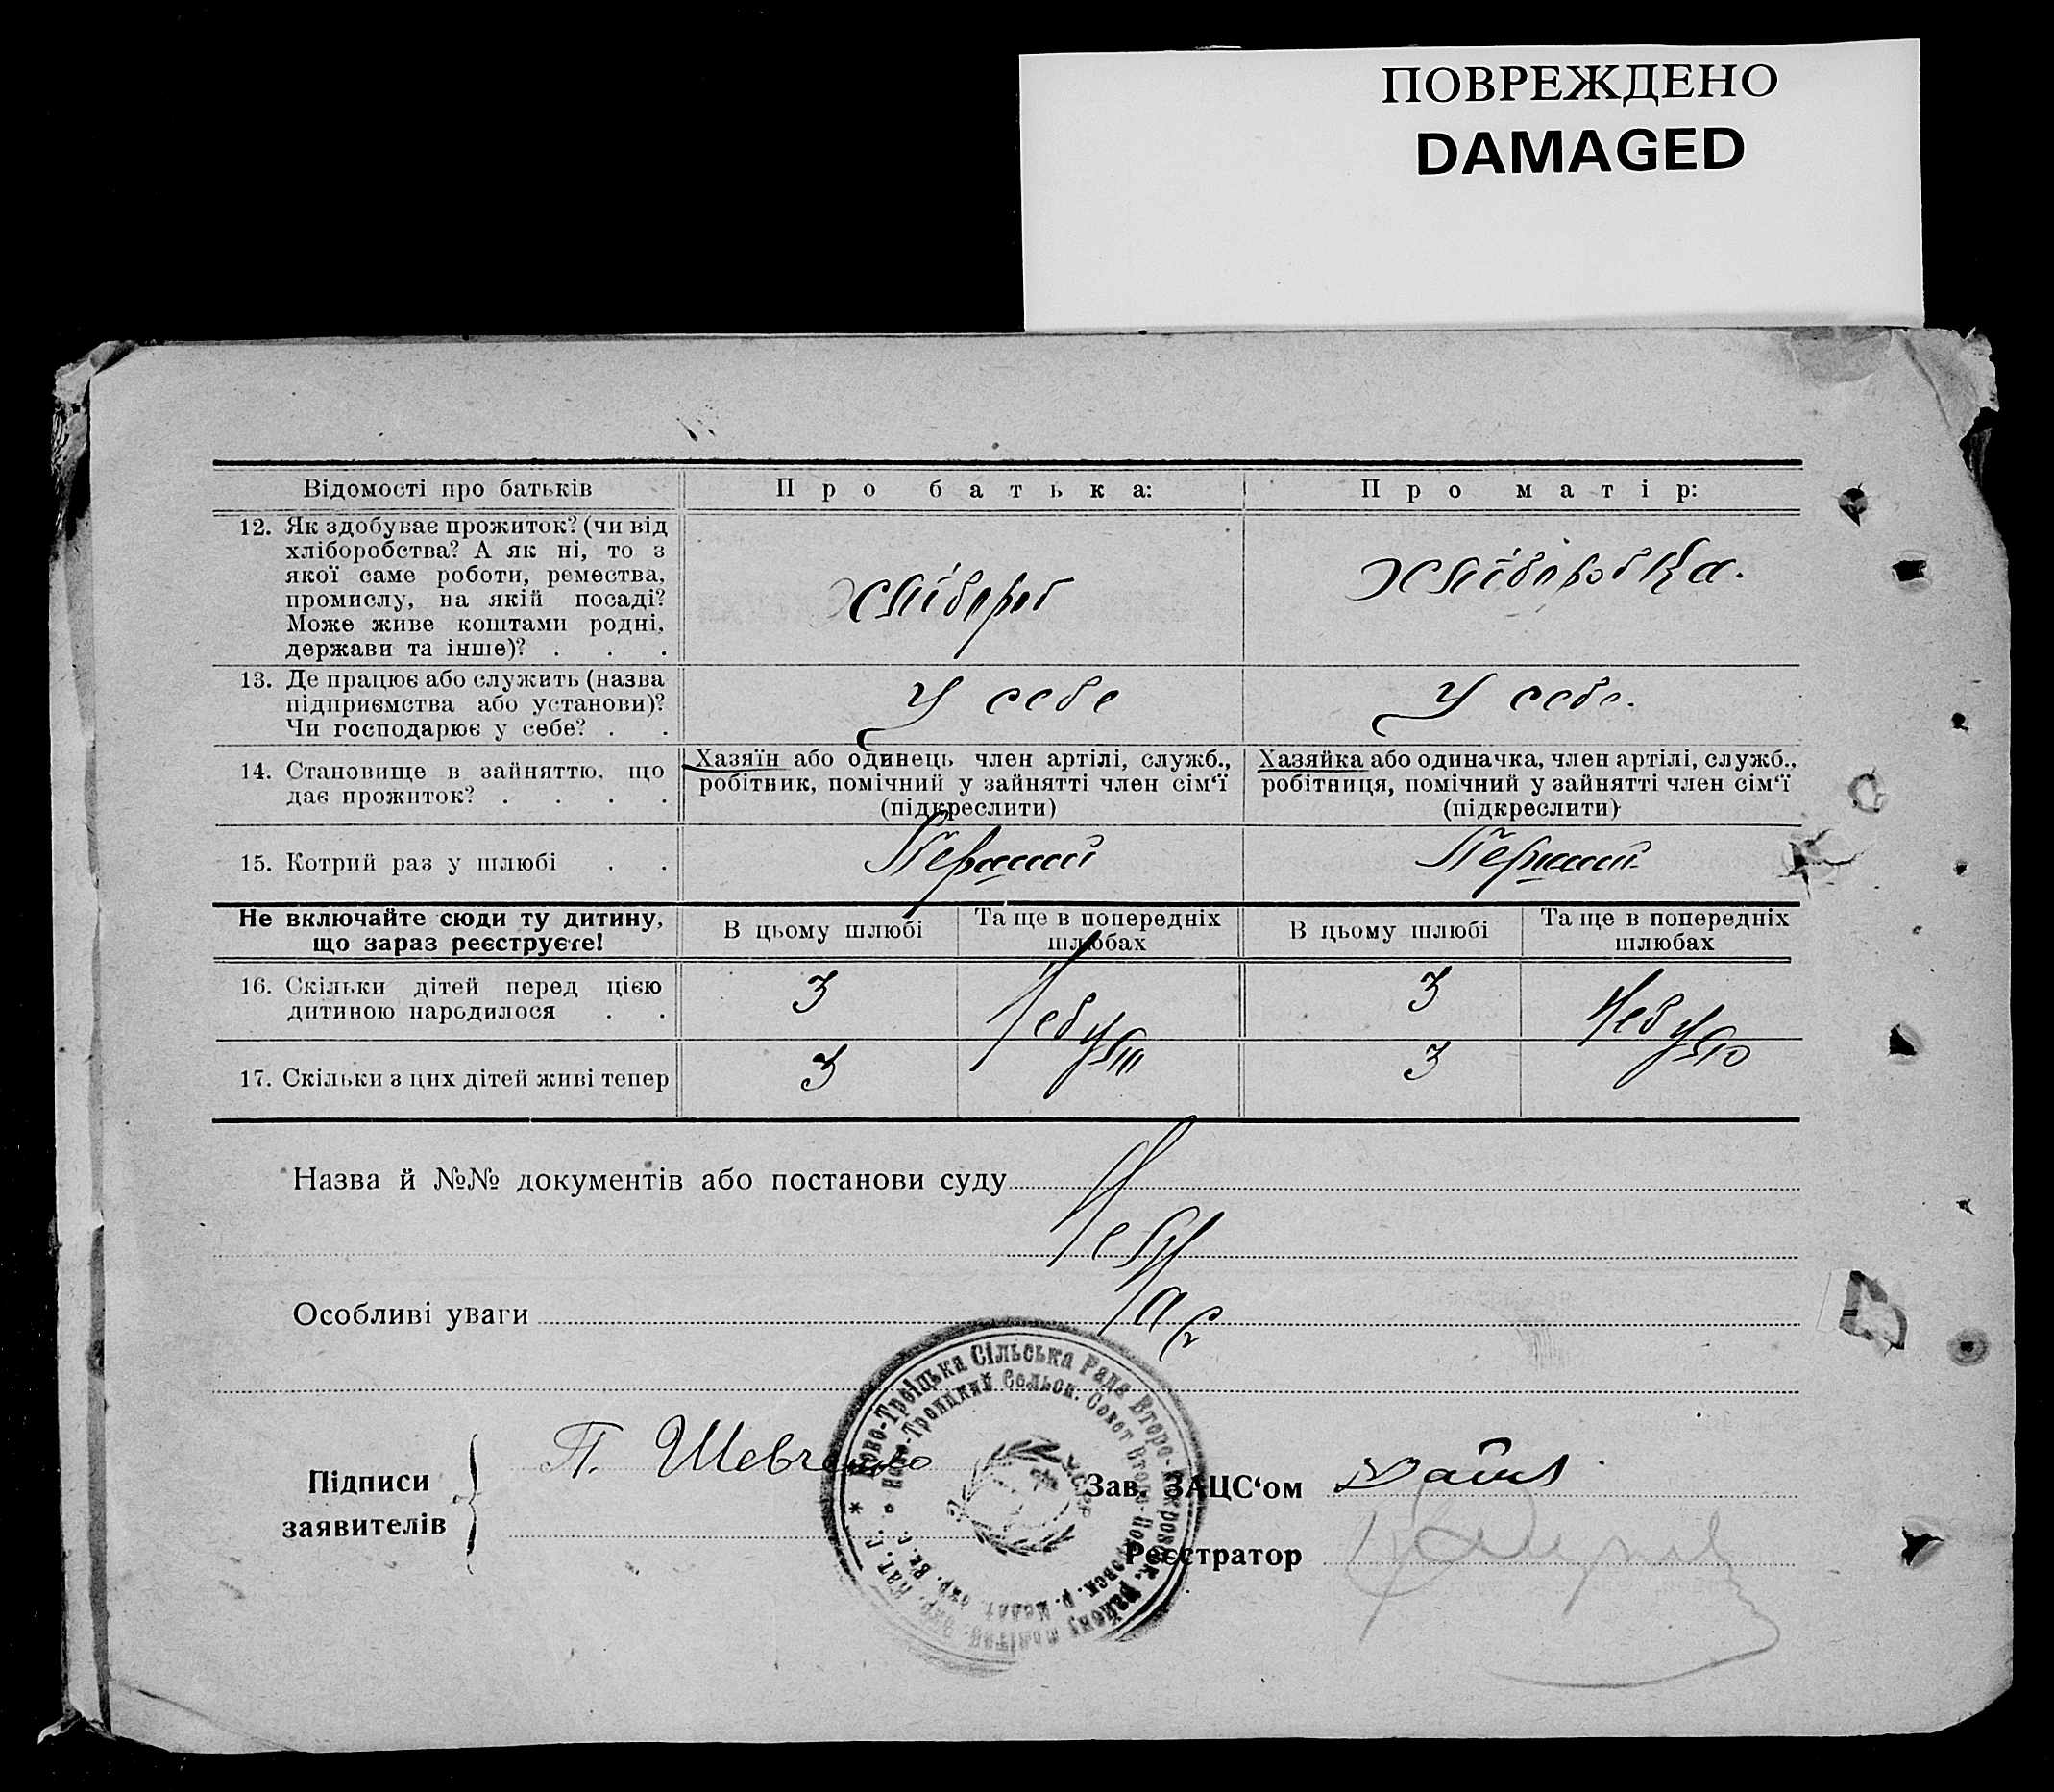 ПОВРЕЖДЕНО
DAMAGED
Відомості про батьків
Про батька:
Про матір:
12. Як здобуває прожиток? (чи від
хліборобства? А як ні, то з
якої саме роботи, ремества,
промислу, на якій посаді?
Може живе коштами родні,
держави та інше)? . . .
Хлібороб
Хліборобка.
13. Де працює або служить (назва
підприємства або установи)?
Чи господарює у себе? . .
У себе
У себе.
14. Становище в зайняттю, що
дає прожиток? . . . .
Хазяїн або одинець член артілі, служб.,
робітник, помічний у зайнятті член сім‘ї
(підкреслити)
Хазяйка або одиначка, член артілі, служб.,
робітниця, помічний у зайнятті член сім‘ї
(підкреслити)
15. Котрий раз у шлюбі . .
Перший
Перший
Не включайте сюди ту дитину,
що зараз реєструєте!
В цьому шлюбі
Та ще в попередніх
шлюбах
В цьому шлюбі
Та ще в попередніх
шлюбах
16. Скільки дітей перед цією
дитиною народилося . .
3
Небули
3
Небуло
17. Скільки з цих дітей живі тепер
3
3
Назва й №№ документів або постанови суду
Особливі уваги
Підписи
заявителів
П. Шевченко
Ново-Троіцька Сільська Рада Второ-Покровськ. району
Ново-Троицкий Сельск. Совет Второ-Покровск. р.
У.С.Р.Р.
Зав. ЗАЦС‘ом
Реєстратор